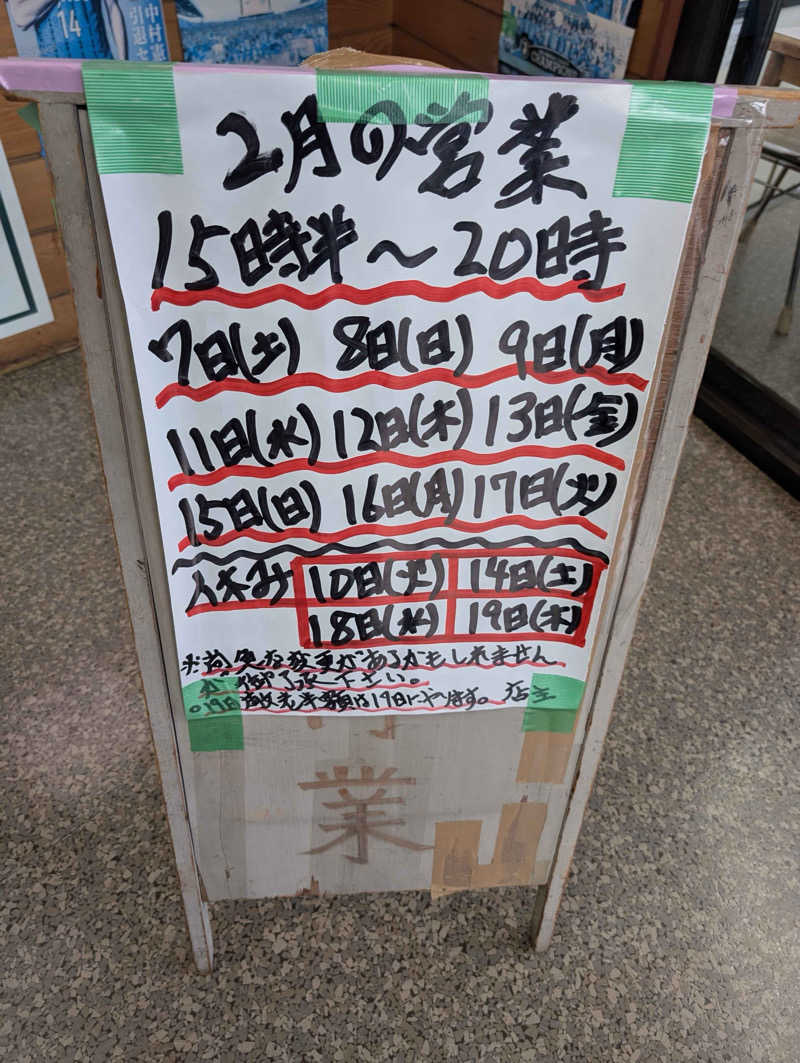 14
中村憲
引退さ
CHAMPIONS
2月の営業
15時半～20時
7日(土) 8日(日) 9日(月)
11日(水) 12日(木) 13日(金)
15日(日) 16日(月) 17日(火)
休み 10日(火) 14日(土)
18日(水) 19日(木)
※尚急な変更があるかもしれません
が御了承下さい。
半額は17日にやります。 店主
業